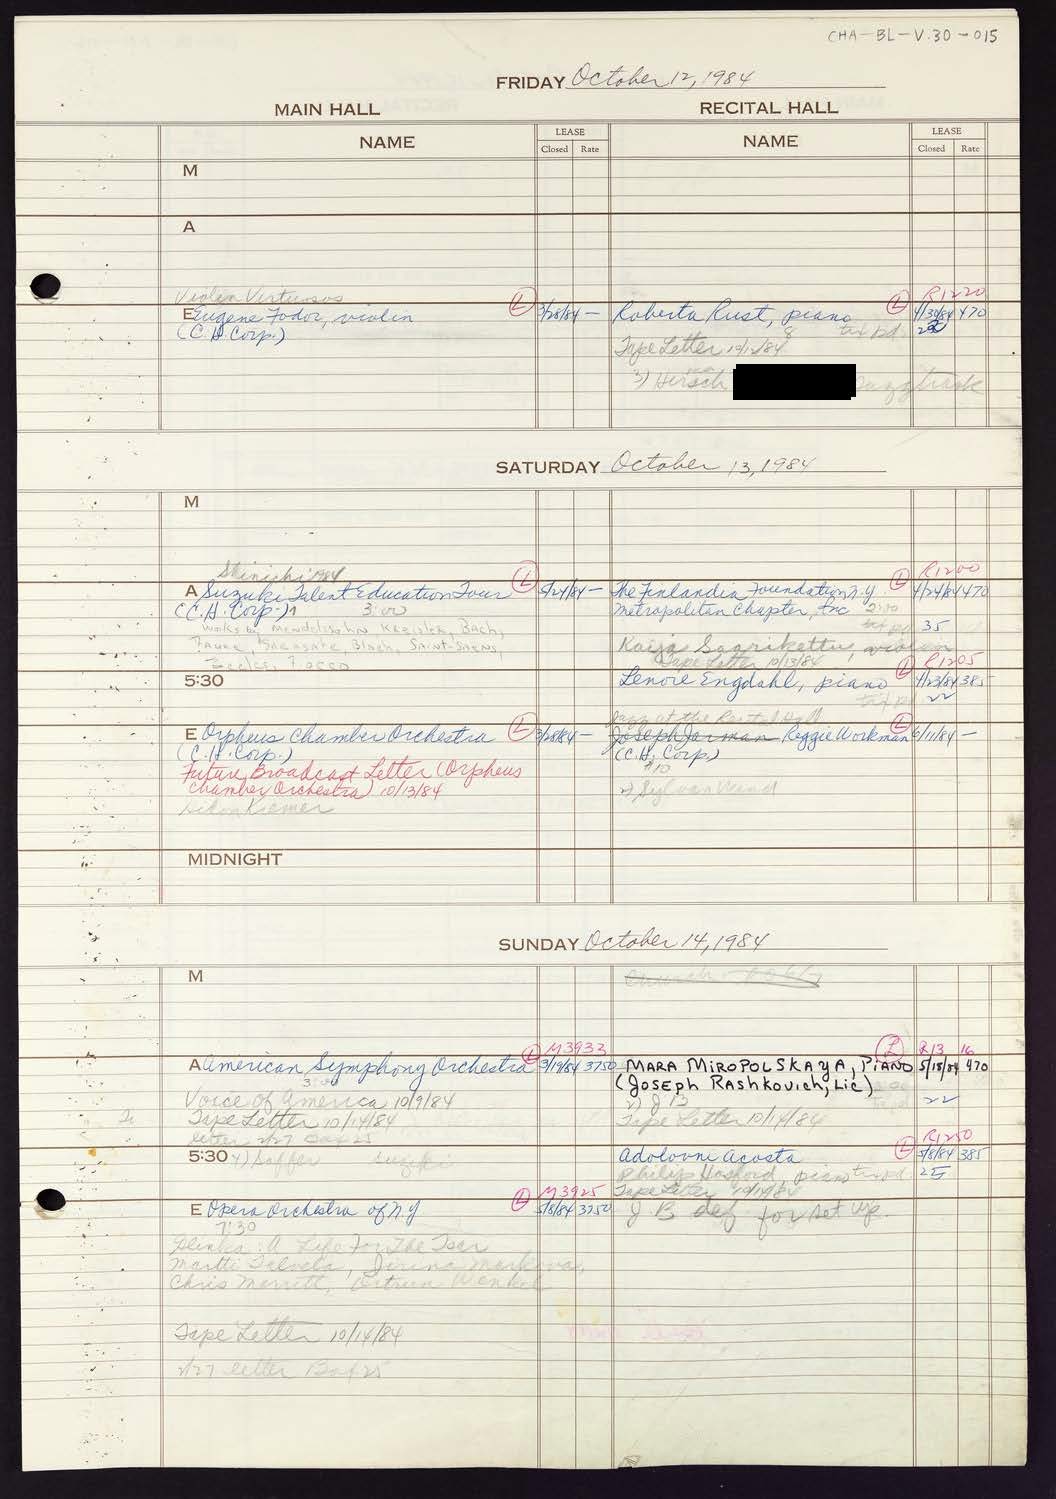 CHA-BL-V.30-015
FRIDAY October 12, 1984
MAIN HALL
RECITAL HALL
NAME
LEASE
Closed Rate
NAME
LEASE
Closed Rate
M
A
Violin Virtuosos
E Eugene Fodor, violin
(C.H. Corp.)
L 3/28/84 —
R1220
Roberta Rust, piano L 4/30/84 470
8 tix pd.
Tape Letter 10/12/84
3) Hirsch
SATURDAY October 13, 1984
M
Shinichi 1984
A Suzuki Talent Education Tour L 5/24/84 —
(C.H. Corp.) 3:00
works by Mendelssohn, Kreisler, Bach,
Faure, Sarasate, Bloch, Saint-Saens,
Eccles, Fiocco
R1200
The Finlandia Foundation N.Y. L 4/24/84 470
Metropolitan Chapter, Inc 2:00
tix pd 35
Kaija Saarikettu, violin
Tape Letter 10/13/84
5:30
R1205
Lenore Engdahl, piano L 4/23/84 385
tix pd 22
E Orpheus Chamber Orchestra L 3/28/84 —
(C.H. Corp.)
Future Broadcast Letter (Orpheus
Chamber Orchestra) 10/13/84
Gidon Kremer
Jazz at the Recital Hall
Joseph Jarman Reggie Workman L 6/11/84 —
(C.H. Corp.)
$10
2) Sylvan Wind
MIDNIGHT
SUNDAY October 14, 1984
M
Church
M3932
A American Symphony Orchestra L 3/19/84 3750
3:00
Voice of America 10/9/84
Tape Letter 10/14/84
letter 2/27 Box 25
L R13 16
MARA MIROPOLSKAYA, PIANO 5/18/84 470
(JOSEPH RASHKOVICH, Lic)
22
Tape Letter 10/14/84
5:30
R1250
Adolovni Acosta L 5/8/84 385
Philip Hosford piano tix pd 25
Tape Letter 10/14/84
J B def for set up.
M3925
E Opera Orchestra of N.Y L 5/8/84 3750
7:30
Glinka: A Life For The Tsar
Martti Talvela,
Chris Merritt, Ortrun Wenkel
Tape Letter 10/14/84
2/27 letter Box 25